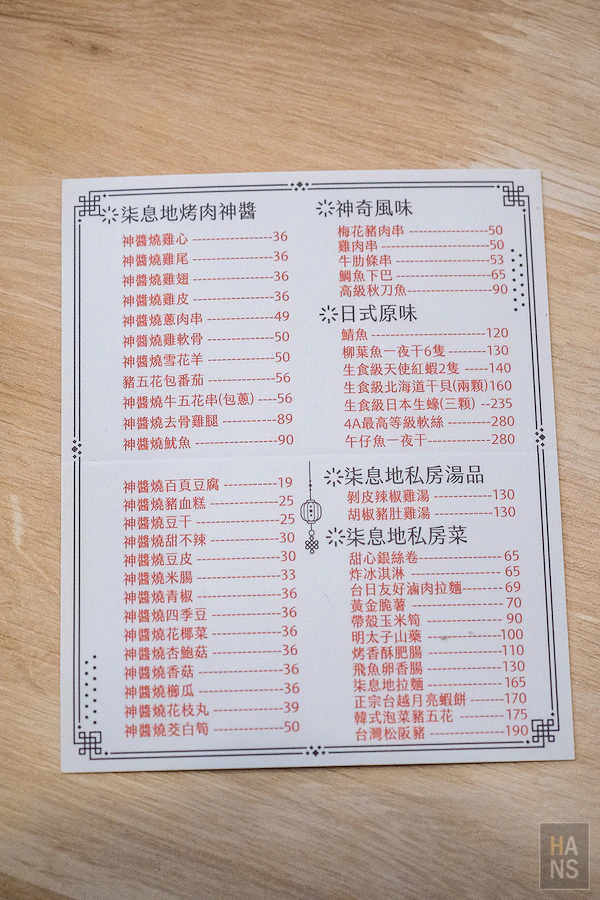 柒息地烤肉神醬
神醬燒雞心 ------------------36
神醬燒雞尾 ------------------36
神醬燒雞翅 ------------------36
神醬燒雞皮 ------------------36
神醬燒蔥肉串 ---------------49
神醬燒雞軟骨 ---------------50
神醬燒雪花羊 ---------------50
豬五花包番茄 ---------------56
神醬燒牛五花串(包蔥) ----56
神醬燒去骨雞腿 ------------89
神醬燒魷魚 ------------------90
神醬燒百頁豆腐 ------------19
神醬燒豬血糕 ---------------25
神醬燒豆干 ------------------25
神醬燒甜不辣 ---------------30
神醬燒豆皮 ------------------30
神醬燒米腸 ------------------33
神醬燒青椒 ------------------36
神醬燒四季豆 ---------------36
神醬燒花椰菜 ---------------36
神醬燒杏鮑菇 ---------------36
神醬燒香菇 ------------------36
神醬燒櫛瓜 ------------------36
神醬燒花枝丸 ---------------39
神醬燒茭白筍 ---------------50
神奇風味
梅花豬肉串 -----------------50
雞肉串 ----------------------50
牛肋條串 -------------------53
鯛魚下巴 -------------------65
高級秋刀魚-----------------90
日式原味
鯖魚 ------------------------120
柳葉魚一夜干6隻 --------130
生食級天使紅蝦2隻 -----140
生食級北海道干貝(兩顆)160
生食級日本生蠔(三顆) --235
4A最高等級軟絲 ---------280
午仔魚一夜干-------------280
柒息地私房湯品
剝皮辣椒雞湯 ------------130
胡椒豬肚雞湯 ------------130
柒息地私房菜
甜心銀絲卷 --------------- 65
炸冰淇淋 ----------------- 65
台日友好滷肉拉麵-------- 69
黃金脆薯 ----------------- 70
帶殼玉米筍 --------------- 90
明太子山藥 --------------100
烤香酥肥腸 --------------110
飛魚卵香腸 --------------130
柒息地拉麵 --------------165
正宗台越月亮蝦餅 ------170
韓式泡菜豬五花 ---------175
台灣松阪豬 --------------190
HANS